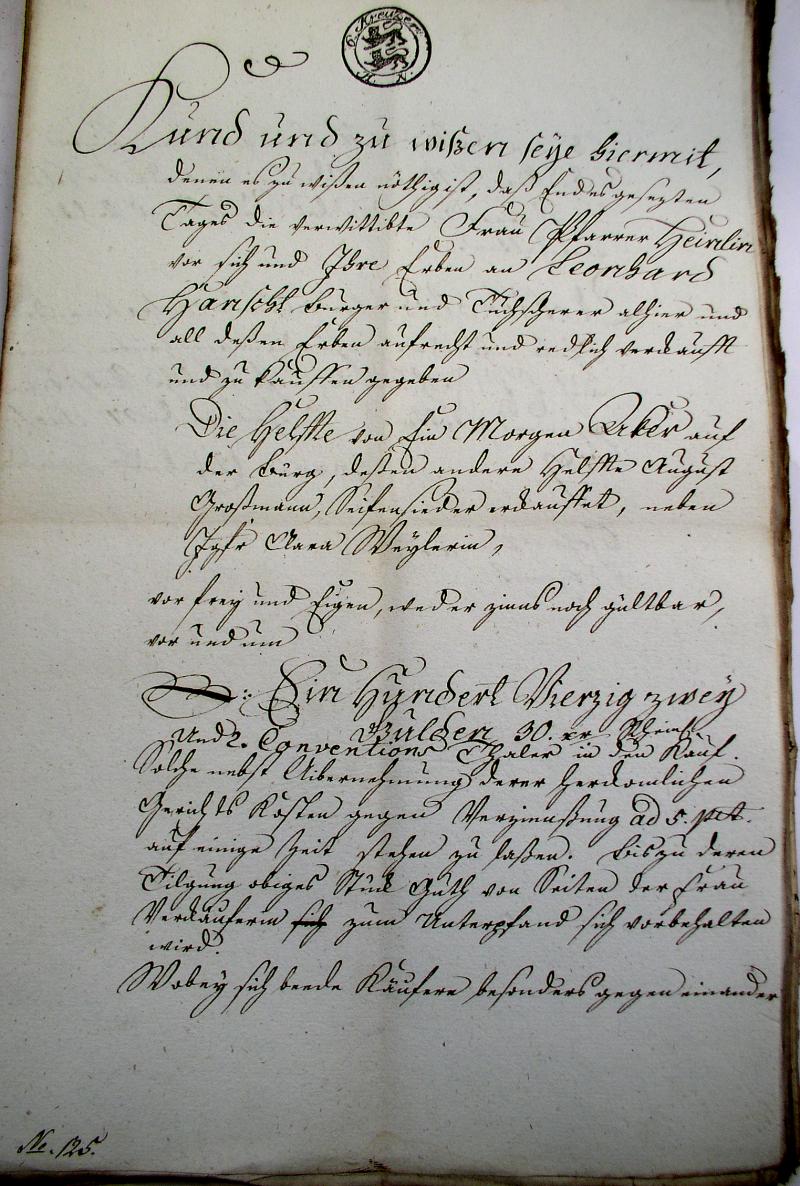 6. Kreutzer
Kund und zu wißen seye hiermit,
denen es zu wißen nöthig ist, daß Endesgesezten
Tages die verwittibte Frau Pfarrer Heinlin
vor sich und Ihre Erben an Leonhard
Burger und Tuchscherer alhier und
all deßen Erben aufrecht und redlich verkaufft
und zu kauffen gegeben
Die Helffte von Ein Morgen Aker auf
der Burg, deßen andere Helffte August
Großmann, Seifensieder erkauffet, neben
Jgfr Clara Weylerin,
vor frey und Eigen, weder zinns noch gültbar,
vor und um
Ein Hundert Vierzig zwey
Gulden 30. xr Rheinl.
Und 2. Conventions Thaler in den Kauf.
Solche nebst Uibernehmung derer herkomlichen
Gerichts Kosten gegen Verzinnßung ad 5. pCt.
auf einige Zeit stehen zu laßen. Bis zu deren
Tilgung obiges Stück Guth von Seiten der Frau
Verkäuferin sich zum Unterpfand sich vorbehalten
wird.
Wobey sich beede Käufere besonders gegen einander
No. 125.